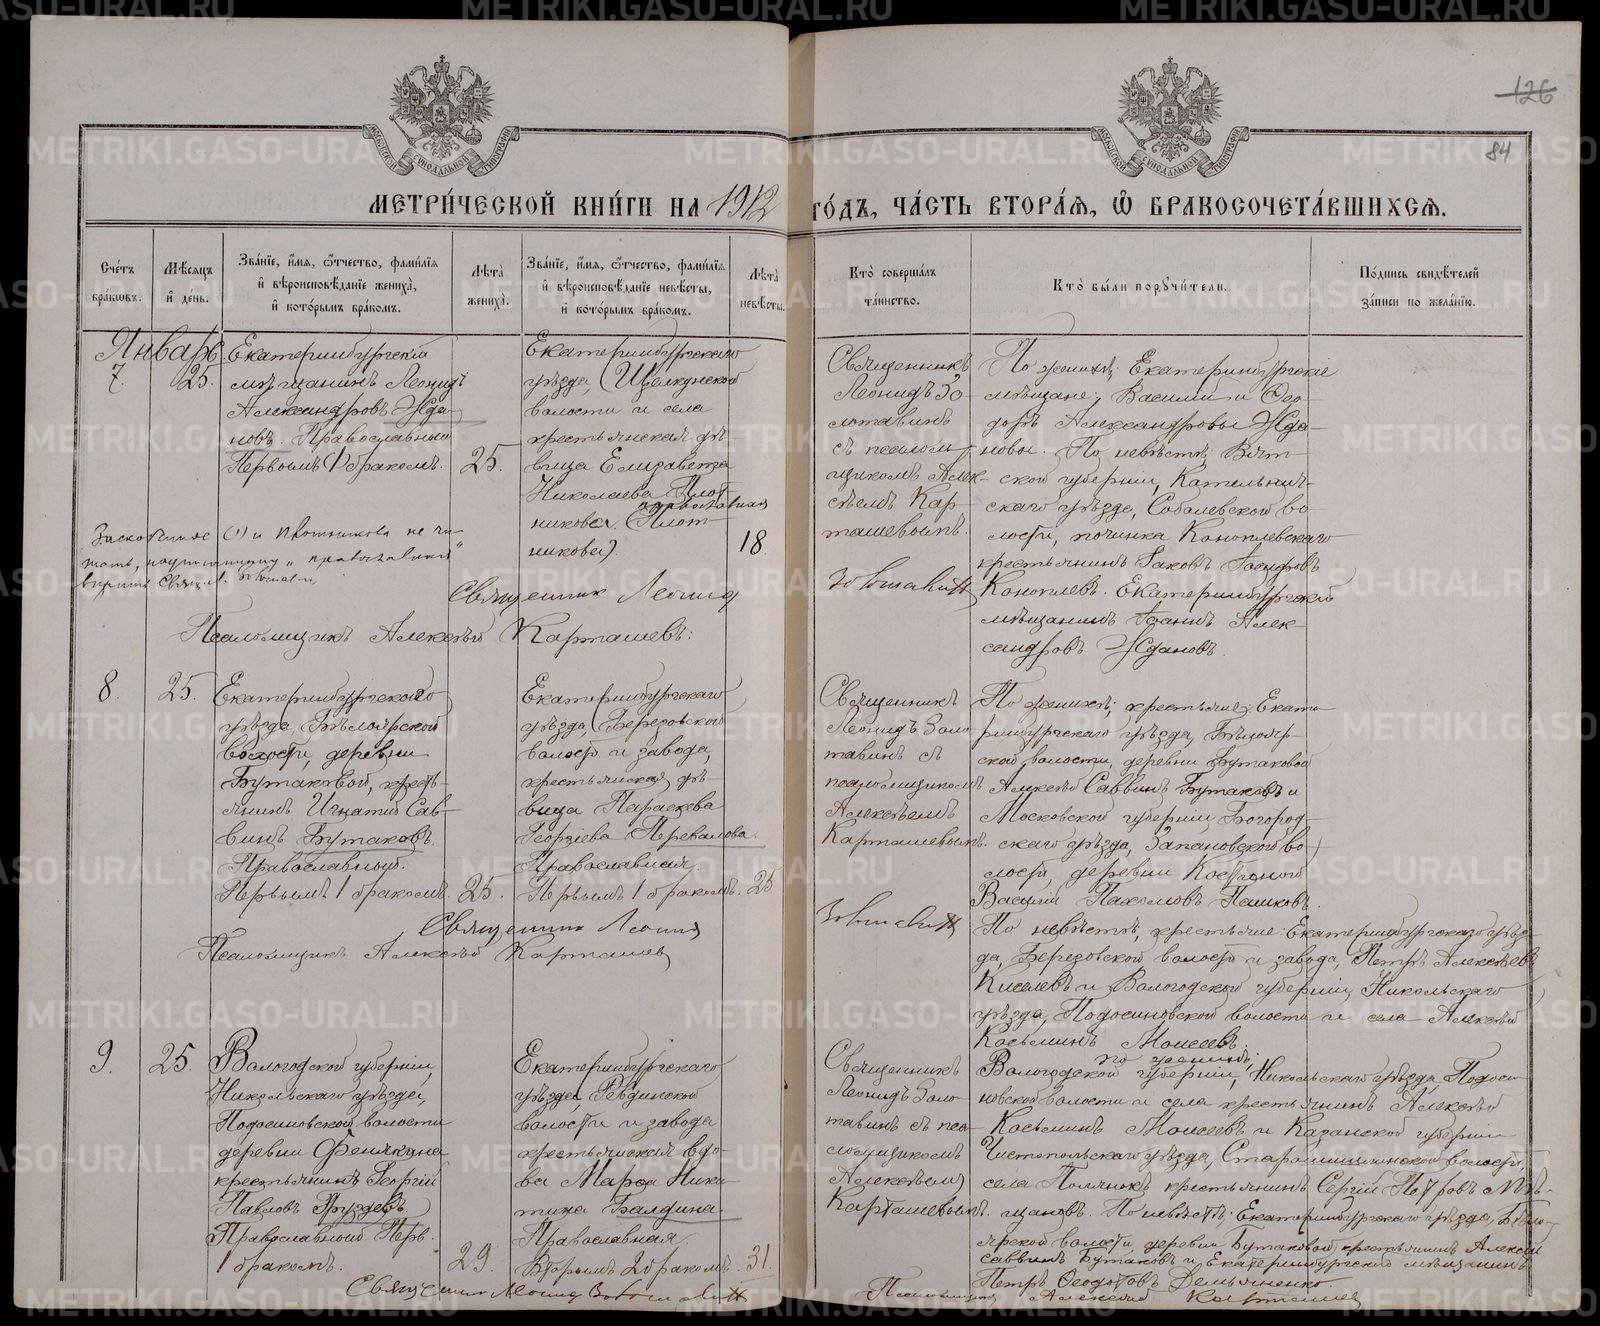 126
84
МЕТРИ́ЧЕСКОЙ КНИ́ГИ НА 1912 ГО́ДЪ, ЧА́СТЬ ВТОРА́Я, Ѡ҆ БРАКОСОЧЕТА́ВШИХСЯ.
Сче́тъ бра́ковъ.
Мѣ́сяцъ и҆ де́нь.
Зва́нїе, и҆́мѧ, ѻ҆́тчество, фами́лїѧ и҆ вѣроисповѣ́данїе жениха̀, и҆ кото́рымъ бра́комъ.
Лѣта̀ жениха̀.
Зва́нїе, и҆́мѧ, ѻ҆́тчество, фами́лїѧ и҆ вѣроисповѣ́данїе невѣ́сты, и҆ кото́рымъ бра́комъ.
Лѣта̀ невѣ́сты.
Кто̀ соверша́лъ та́инство.
Кто̀ бы́ли порꙋчи́тели.
По́дпись свидѣ́телей за́писи по жела́нїю.
Январь
7.
25.
Екатеринбургскій
мѣщанинъ Леонидъ
Александровъ Жда-
новъ. Православный
Первымъ 1 бракомъ.
25.
Екатеринбургскаго
уѣзда, Щелкунской
волости и села
крестьянская дѣ-
вица Елизавета
Николаева Плот-
православная
никова (Плот-
никова).
18
Священникъ
Леонидъ Зо-
лотавинъ
съ псалом-
щикомъ Алек-
сѣемъ Кар-
ташевымъ.
По женихѣ: Екатеринбургскіе
мѣщане: Василій и Фео-
доръ Александровы Жда-
новы. По невѣстѣ: Вят-
ской губерніи, Котельнич-
скаго уѣзда, Соболевской во-
лости, починка Коноплевскаго
крестьянинъ Іаковъ
Коноплевъ. Екатеринбургскій
мѣщанинъ Іоаннъ Алек-
сандровъ Ждановъ.
и Плотникова не чи-
тать, надписанному „православная“
вѣрить
Священникъ Леонид Золотавин
Псаломщикъ Алексѣй Карташевъ:
8.
25.
Екатеринбургскаго
уѣзда, Бѣлоярской
волости, деревни
Бутаковой, кресть-
янинъ Игнатій Сав-
винъ Бутаковъ.
Православный.
Первымъ 1 бракомъ.
25.
Екатеринбургскаго
уѣзда, Березовской
волости и завода,
крестьянская дѣ-
вица Параскева
Георгіева Перевалова.
Православная
Первымъ 1 бракомъ.
25
Священникъ
Леонидъ Золо-
тавинъ съ
псаломщикомъ
Алексѣемъ
Карташевымъ.
По женихѣ: крестьяне: Екате-
ринбургскаго уѣзда, Бѣлояр-
ской волости, деревни Бутаковой
Алексѣй Саввинъ Бутаковъ и
Московской губерніи Богород-
скаго уѣзда, Запоновской во-
лости, деревни
Василій Пахомовъ Пашковъ.
По невѣстѣ, крестьяне: Екатеринбургскаго уѣз-
да, Березовской волости и завода, Петръ Алексѣевъ
Киселевъ и Вологодской губерніи Никольскаго
уѣзда, Подосиновской волости и села Алексѣй
Косьминъ Моисеевъ.
Священник Леонид Золотавин
Псаломщикъ Алексѣй Карташев
9.
25.
Вологодской губерніи,
Никольскаго уѣзда,
Подосиновской волости
деревни
крестьянинъ Георгій
Павловъ Груздевъ.
Православный. Перв.
1 бракомъ.
29.
Екатеринбургскаго
уѣзда, Ревдинской
волости и завода
крестьянская вдо-
ва Марѳа Ники-
тина Балдина
Православная.
Вторымъ 2 бракомъ.
31.
Священникъ
Леонидъ Золо-
тавинъ съ пса-
ломщикомъ
Алексѣемъ
Карташевымъ.
по женихѣ:
Вологодской губерніи, Никольскаго уѣзда, Подоси-
новской волости и села крестьянинъ Алексѣй
Косьминъ Моисеевъ и Казанской губерніи
Чистопольскаго уѣзда, волости,
села Полянокъ крестьянинъ Сергій Петровъ Мѣ-
щановъ. По невѣстѣ: Екатеринбургскаго уѣзда, Бѣло-
ярской волости, деревни Бутаковой крестьянинъ Алексѣй
Саввинъ Бутаковъ и Екатеринбургскій мѣщанинъ
Петръ Ѳеодотовъ Демьяненко.
Священник Леонид Золотавин
Псаломщикъ Алексѣй Карташев
METRIKI.GASO-URAL.RU